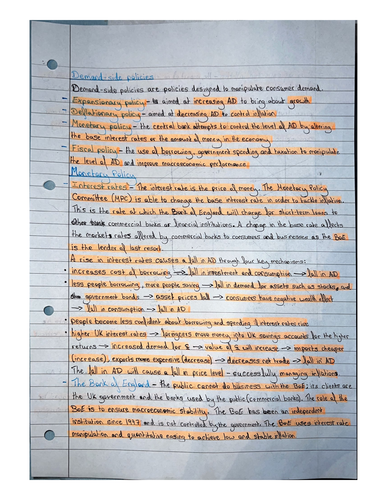 Demand-side policies
Demand-side policies are policies designed to manipulate consumer demand.
- Expansionary policy - is aimed at increasing AD to bring about growth
- Deflationary policy - aimed at decreasing AD to control inflation.
- Monetary policy - the central bank attempts to control the level of AD by altering
the base interest rates or the amount of money in the economy.
- Fiscal policy - the use of borrowing, government spending and taxation to manipulate
the level of AD and improve macroeconomic performance.
Monetary Policy
- Interest rates - The interest rate is the price of money. The Monetary Policy
Committee (MPC) is able to change the base interest rate in order to tackle inflation.
This is the rate at which the Bank of England will charge for short-term loans to
other commercial banks or financial institutions. A change in the base rate affects
the markets rates offered by commercial banks to consumers and businesses as the BoE
is the lender of last resort.
A rise in interest rates causes a fall in AD through four key mechanisms:
• increases cost of borrowing → fall in investment and consumption → fall in AD
• less people borrowing, more people saving → fall in demand for assets such as stocks, and
government bonds → asset prices fall → consumers have negative wealth effect
→ fall in consumption → fall in AD
• people become less confident about borrowing and spending if interest rates rise
• higher UK interest rates → foreigners move money into UK savings accounts for the higher
returns → increased demand for £ → value of £ will increase → imports cheaper
(increase), exports more expensive (decrease) → decreases net trade → fall in AD
The fall in AD will cause a fall in price level - successfully managing inflation.
- The Bank of England - The public cannot do business with the BoE; its clients are
the UK government and the banks used by the public (commercial banks). The role of the
BoE is to ensure macroeconomic stability. The BoE has been an independent
institution since 1997 and is not controlled by the government. The BoE uses interest rate
manipulation and quantitative easing to achieve low and stable inflation